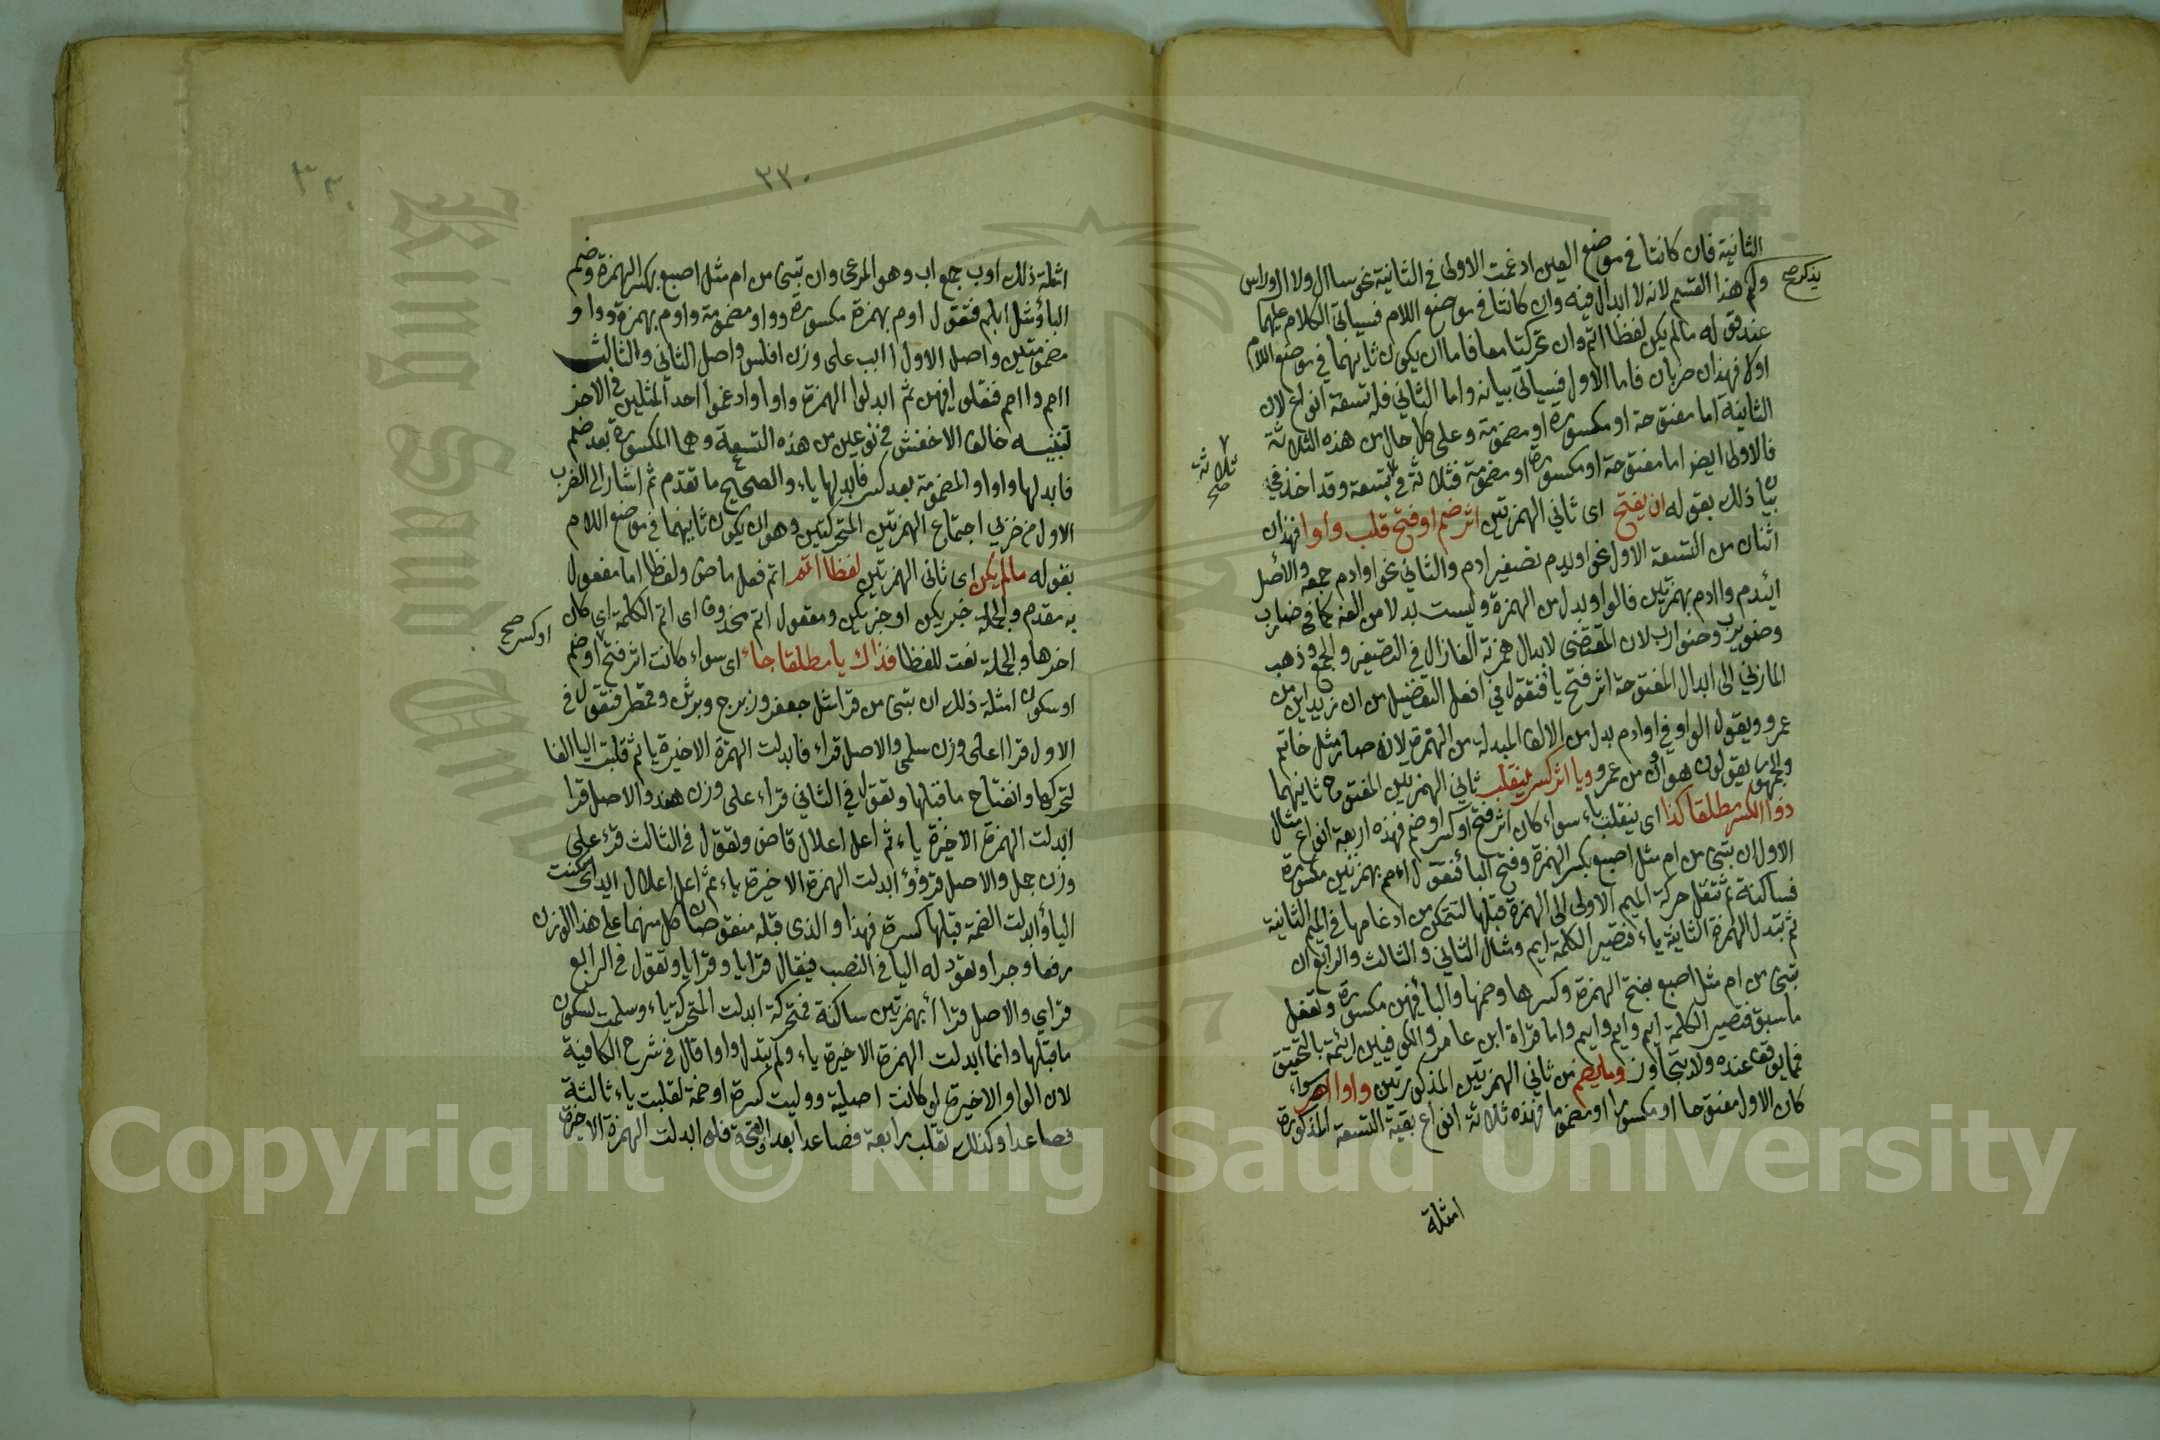 الثانية فان كانتا في موضع العين ادغمت الاولى في الثانية نحو سأال ولاال وراس
يذكر صح
ولم هذا القسم لانه لا ابدال فيه وان كانتا في موضع اللام فسيأتى الكلام عليهما
عند قوله مالم يكن لفظا اتم وان تحركتا معا فاما ان يكون ثانيهما في موضع اللام
اولا فهذان ضربان فاما الاول فسيأتى بيانه واما الثاني فله تسعة انواع لان
الثانية اما مفتوحة او مكسورة او مضمومة وعلى كل حال من هذه الثلاثة
فالاولى ايضا اما مفتوحة او مكسورة او مضمومة فثلاثة في بتسعة وقد اخذ في
ثلاثة صح
بيان ذلك بقوله ان يفتح اى ثاني الهمزتين اثر ضم او فتح قلب واوا فهذان
اثنان من التسعة الاول نحو اويدم تصغير ادم والثاني نحو اوادم جمعه والأصل
أيئدم وأادم بهمزتين فالواو بدل من الهمزة وليست بدلا من الفه كما في ضارب
وضويرب وضوارب لان المقتضى لابدال همزته الفا زال في التصغير والجمع وذهب
المازني الى ابدال المفتوحة اثر فتح يا فتقول في افعل التفضيل من ان زيد اين من
عمرو ويقول الواو في اوادم بدل من الالف المبدلة من الهمزة لانه صار مثل خاتم
والجمهور يقولون هو اون من عمرو ويا اثر كسر ينقلب ثاني الهمزتين المفتوح ثانيهما
ذو الكسر مطلقا كذا اى ينقلب ياء سواء كان اثر فتح او كسر او ضم فهذه اربعة انواع مثال
الاول ان تبنى من ام مثل اصبع بكسر الهمزة وفتح البا فتقول اءمم بهمزتين مكسورة
فساكنة ثم تنقل حركة الميم الاولى الى الهمزة قبلها لتتمكن من ادغامها في الميم الثانية
ثم تبدل الهمزة الثانية ياء فتصير الكلمة ايم ومثال الثاني والثالث والرابع ان
تبنى من ام مثل اصبع بفتح الهمزة وكسرها وضمها والبا فيهن مكسورة وتفعل
ما سبق فتصير الكلمة ايم وايم وايم واما قراة ابن عامر والكوفيين ائمة بالتحقيق
فما يوقف عنده ولا يتجاوز وما يضم من ثاني الهمزتين المذكورتين واوا اصر سواء
كان الاول مفتوحا او مكسورا او مضموما فهذه ثلاثة انواع بقية التسعة المذكورة
امثلة
٣٣٠
٣٣٠
امثلة ذلك اوب جمع اب وهو المرعى وان تبنى من ام مثل اصبع بكسر الهمزة وضم
البا ومثل ابلم فتقول اوم بهمزة مكسورة وواو مضمومة واوم بهمزة وواو
مضمومتين واصل الاول أأبب على وزن افلس واصل الثاني والثالث
اامم واامم فنقلوا فيهن ثم ابدلوا الهمزة واوا وادغموا احد المثلين في الاخر
تنبيه خالف الاخفش في نوعين من هذه التسعة وهما المكسورة بعد ضم
فابدلها واوا والمضمومة بعد كسر فابدلها ياء والصحيح ما تقدم ثم اشار الى الضرب
الاول من ضربى اجتماع الهمزتين المتحركتين وهو ان يكون ثانيهما في موضع اللام
بقوله مالم يكن اى ثاني الهمزتين لفظا اتم اتم فعل ماض ولفظا اما مفعول
به مقدم والجملة خبر يكن او خبر يكن ومفعول اتم محذوف اى اتم الكلمة اى كان
اخرها والجملة نعت للفظا فذاك يا مطلقا جاء اى سواء كانت اثر فتح او ضم
او كسر صح
او سكون امثلة ذلك ان تبنى من قرا مثل جعفر وزبرج وبرثن وقمطر فتقول في
الاول قرا اعلى وزن سلمى والاصل قراء فابدلت الهمزة الاخيرة يا ثم قلبت اليا الفا
لتحركها وانفتاح ما قبلها وتقول في الثاني قراء على وزن هند والاصل قرا
ابدلت الهمزة الاخيرة ياء ثم اعل اعلال قاض وتقول في الثالث قرء على
وزن جمل والاصل قرؤؤ ابدلت الهمزة الاخيرة ياء ثم اعل اعلال ايد اى سكنت
اليا وابدلت الضمة قبلها كسرة فهذا والذى قبله منقوصان كل منهما على هذا الوزن
رفعا وجرا وتعود له اليا في النصب فيقال قرايا وقرايا وتقول في الرابع
قراي والاصل قراأ بهمزتين ساكنة فمتحركة ابدلت المتحركة ياء وسلمت لسكون
ما قبلها وانما ابدلت الهمزة الاخيرة ياء ولم تبدل واوا قال في شرح الكافية
لان الواو الاخيرة لو كانت اصلية ووليت كسرة او ضمة لقلبت ياء ثالثة
فصاعدا وكذلك تقلب رابعة فصاعدا بعد الفتحة فلو ابدلت الهمزة الاخيرة
King Saud University
1957
Copyright © King Saud University